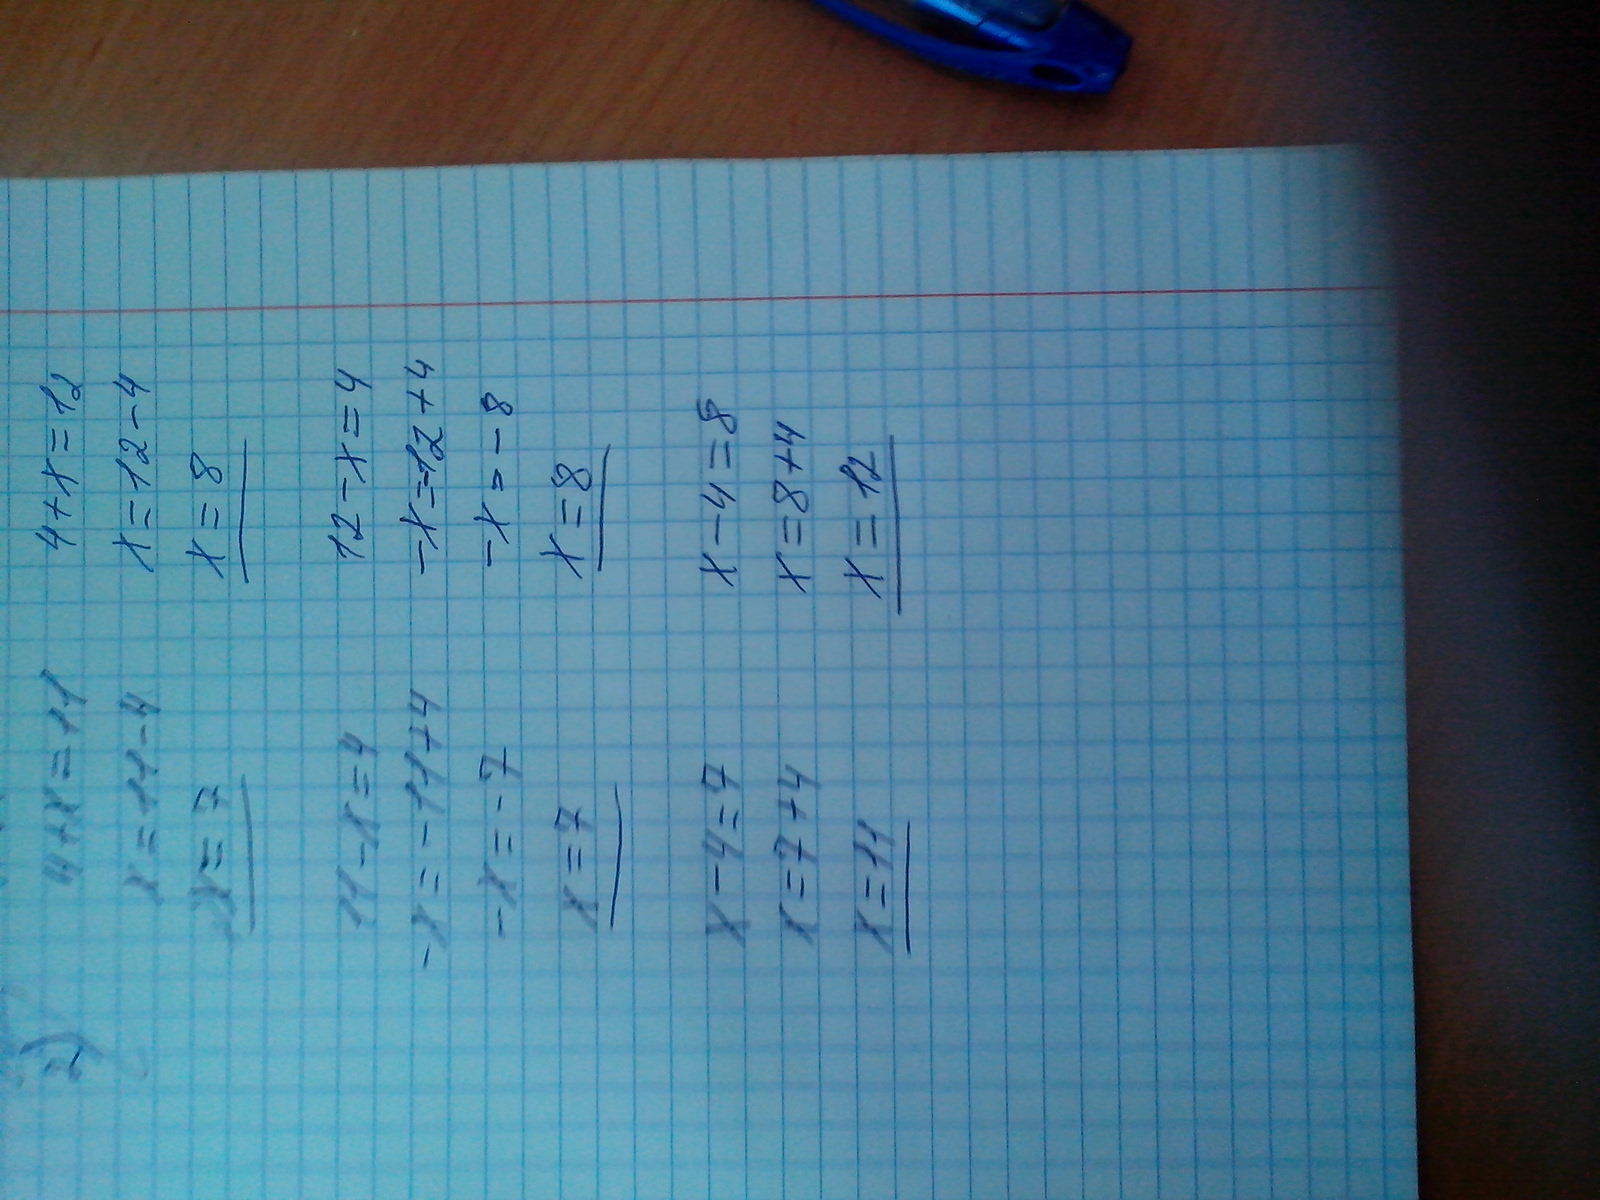 2) 4+x=11 4+x=12
x=11-4 x=12-4
x=7 x=8
11-x=4 12-x=4
-x=-11+4 -x=-12+4
-x=-7 -x=-8
x=7 x=8
x-4=7 x-4=8
x=7+4 x=8+4
x=11 x=12